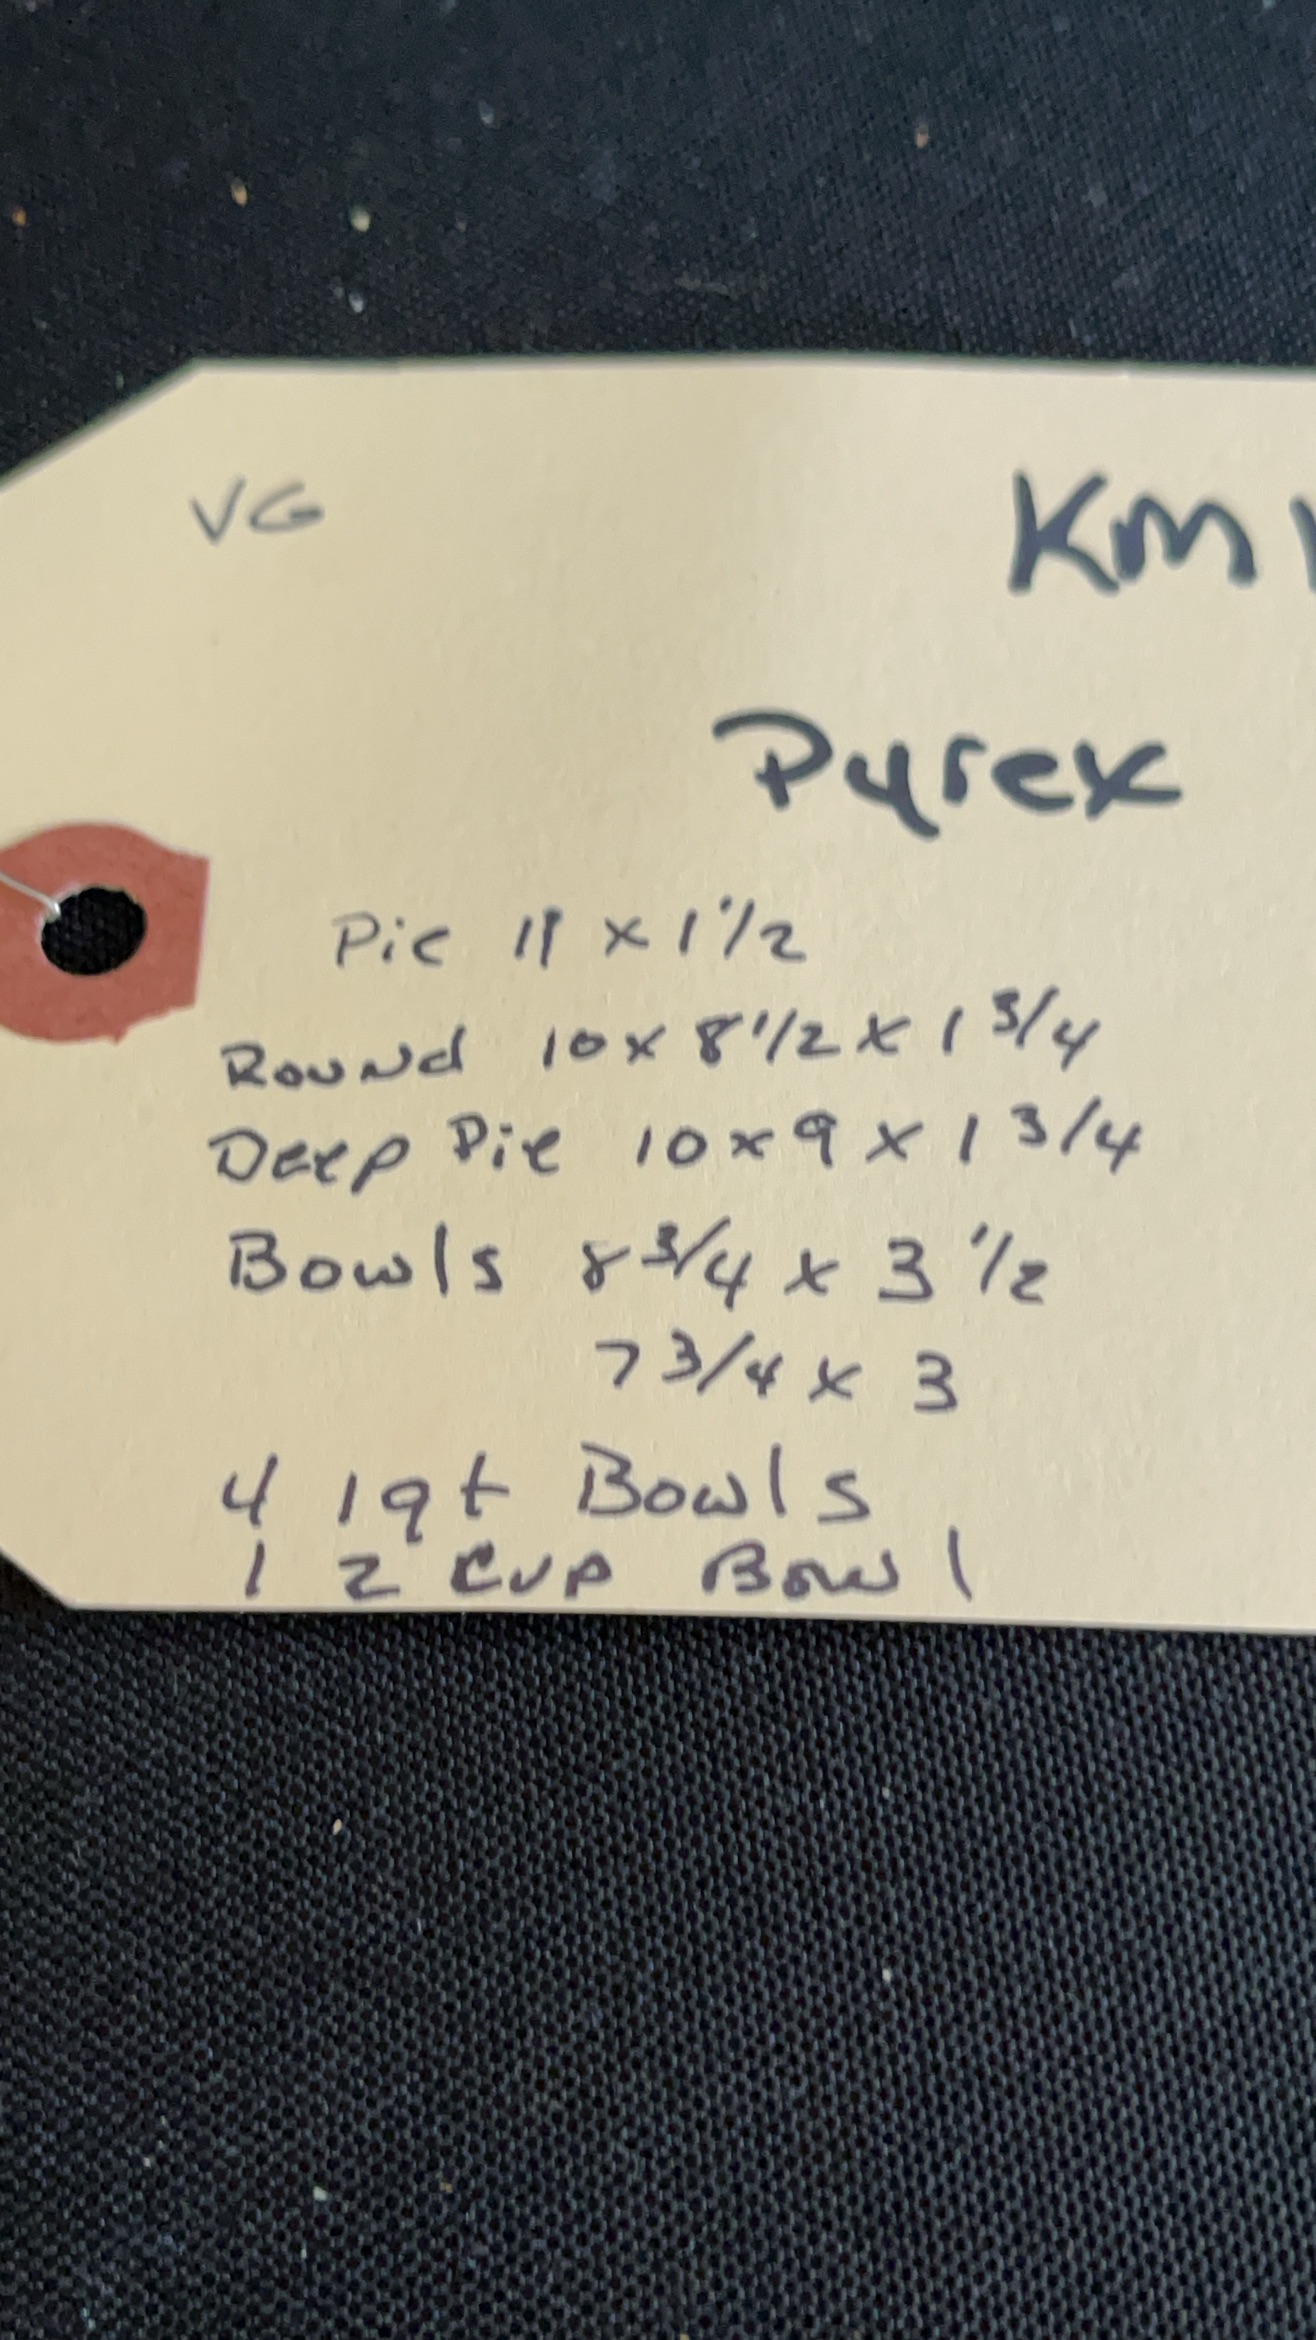 VG
KM
Pyrex
Pie 11 x 1 1/2
Round 10 x 8 1/2 x 1 3/4
Deep Pie 10 x 9 x 1 3/4
Bowls 8 3/4 x 3 1/2
7 3/4 x 3
4 1qt Bowls
1 2 Cup Bowl